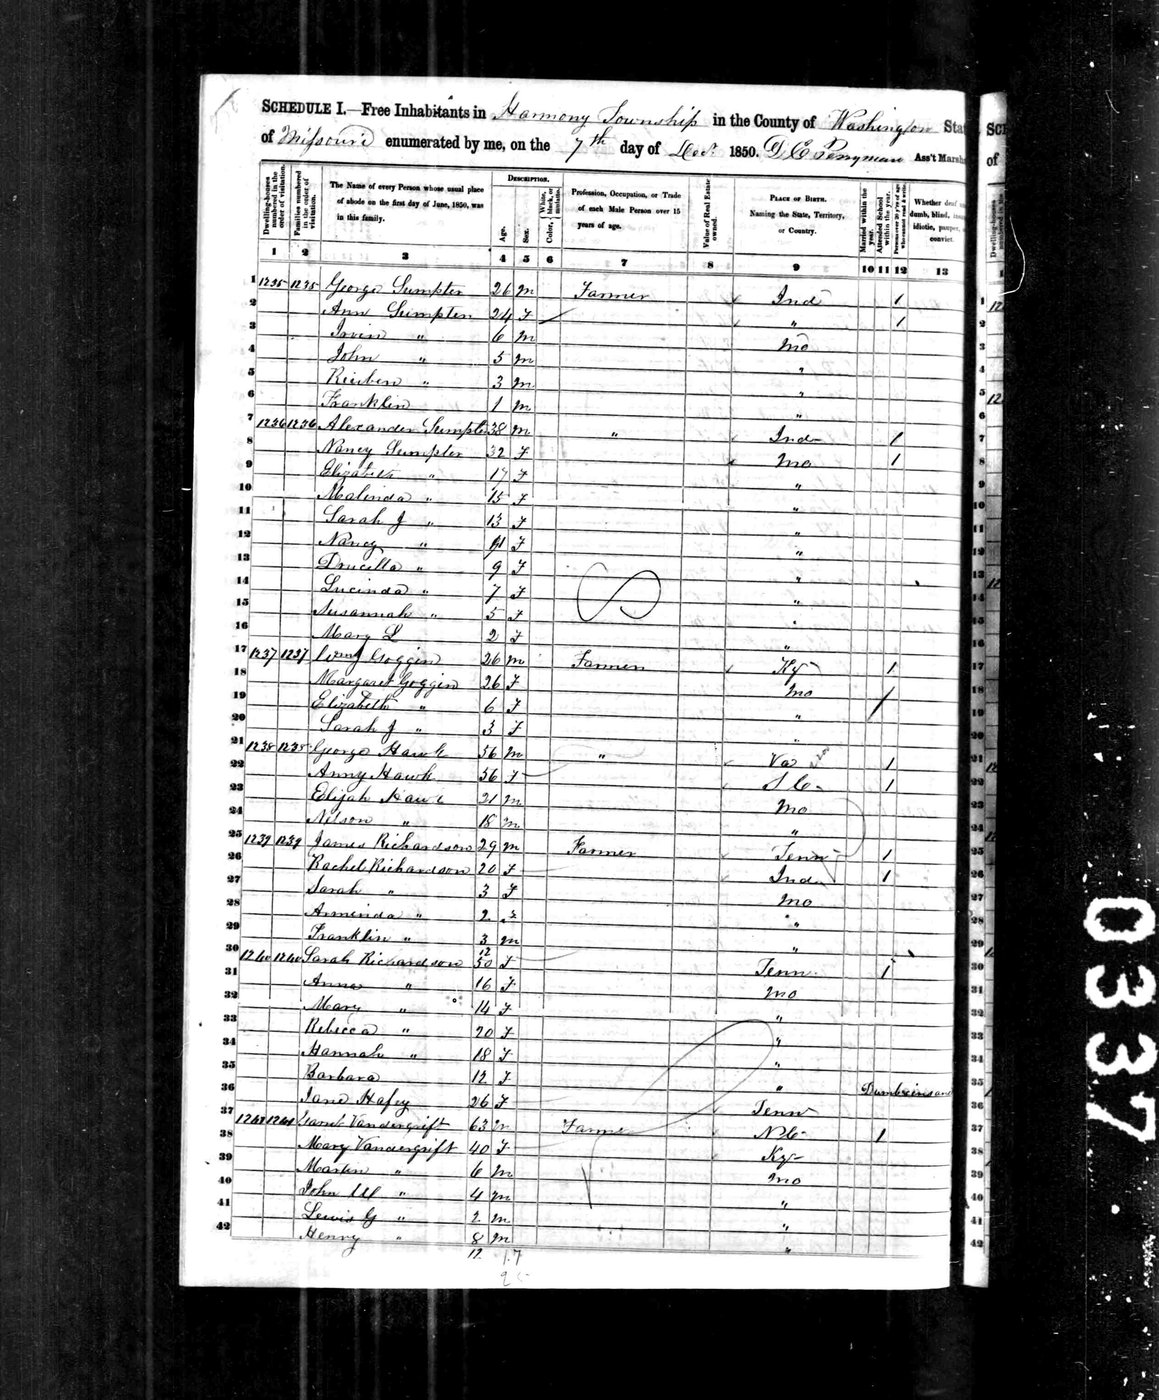 SCHEDULE I.—Free Inhabitants in Harmony Township in the County of Washington State
of Missouri enumerated by me, on the 7th day of Dec. 1850. D E Perryman Ass't Marshal
Dwelling-houses numbered in the order of visitation.
Families numbered in the order of visitation.
The Name of every Person whose usual place of abode on the first day of June, 1850, was in this family.
DESCRIPTION.
Age.
Sex.
Color, White, black, or mulatto.
Profession, Occupation, or Trade of each Male Person over 15 years of age.
Value of Real Estate owned.
PLACE OF BIRTH. Naming the State, Territory, or Country.
Married within the year.
Attended School within the year.
Persons over 20 y'rs of age who cannot read & write.
Whether deaf and dumb, blind, idiotic, pauper, convict.
1 2 3 4 5 6 7 8 9 10 11 12 13
1 1235 1235 George Sumpter 26 m Farmer Ind 1 1
2 Ann Sumpter 24 F " 1 2
3 Irvin " 6 m Mo 3
4 John " 5 m " 4
5 Rieuben " 3 m " 5
6 Franklin 1 m " 6
7 1236 1236 Alexander Sumpter 38 m " Ind 1 7
8 Nancy Sumpter 32 F Mo 1 8
9 Elizabeth " 17 F " 9
10 Malinda " 15 F " 10
11 Sarah J " 13 F " 11
12 Nancy " 11 F " 12
13 Drucilla " 9 F " 13
14 Lucinda " 7 F " 14
15 Susannah " 5 F " 15
16 Mary L 2 F " 16
17 1237 1237 Wm J Goggin 26 m Farmer Ky 1 17
18 Margaret Goggin 26 F Mo 1 18
19 Elizabeth " 6 F " 19
20 Sarah J " 3 F " 20
21 1238 1238 George Hawk 56 m " Va 1 21
22 Anny Hawk 56 F S C 1 22
23 Elijah Hawk 21 m Mo 23
24 Nelson " 18 m " 24
25 1239 1239 James Richardson 29 m Farmer Tenn 1 25
26 Rachel Richardson 20 F Ind 1 26
27 Sarah " 3 F Mo 27
28 Arminda " 2 F " 28
29 Franklin " 3/12 m " 29
30 1240 1240 Sarah Richardson 50 F Tenn 1 30
31 Anna " 16 F Mo 31
32 Mary " 14 F " 32
33 Rebecca " 20 F "
34 Hannah " 18 F "
35 Barbara 12 F " 35
36 Jane Hafey 26 F Tenn Dumb 36
37 1241 1241 Vandergrift 63 m Farmer N C 1 37
38 Mary Vandergrift 40 F Ky 38
39 Marten " 6 m Mo 39
40 John W " 4 m " 40
41 Lewis G " 2 m " 41
42 Henry " 8/12 m " 42
17
0337